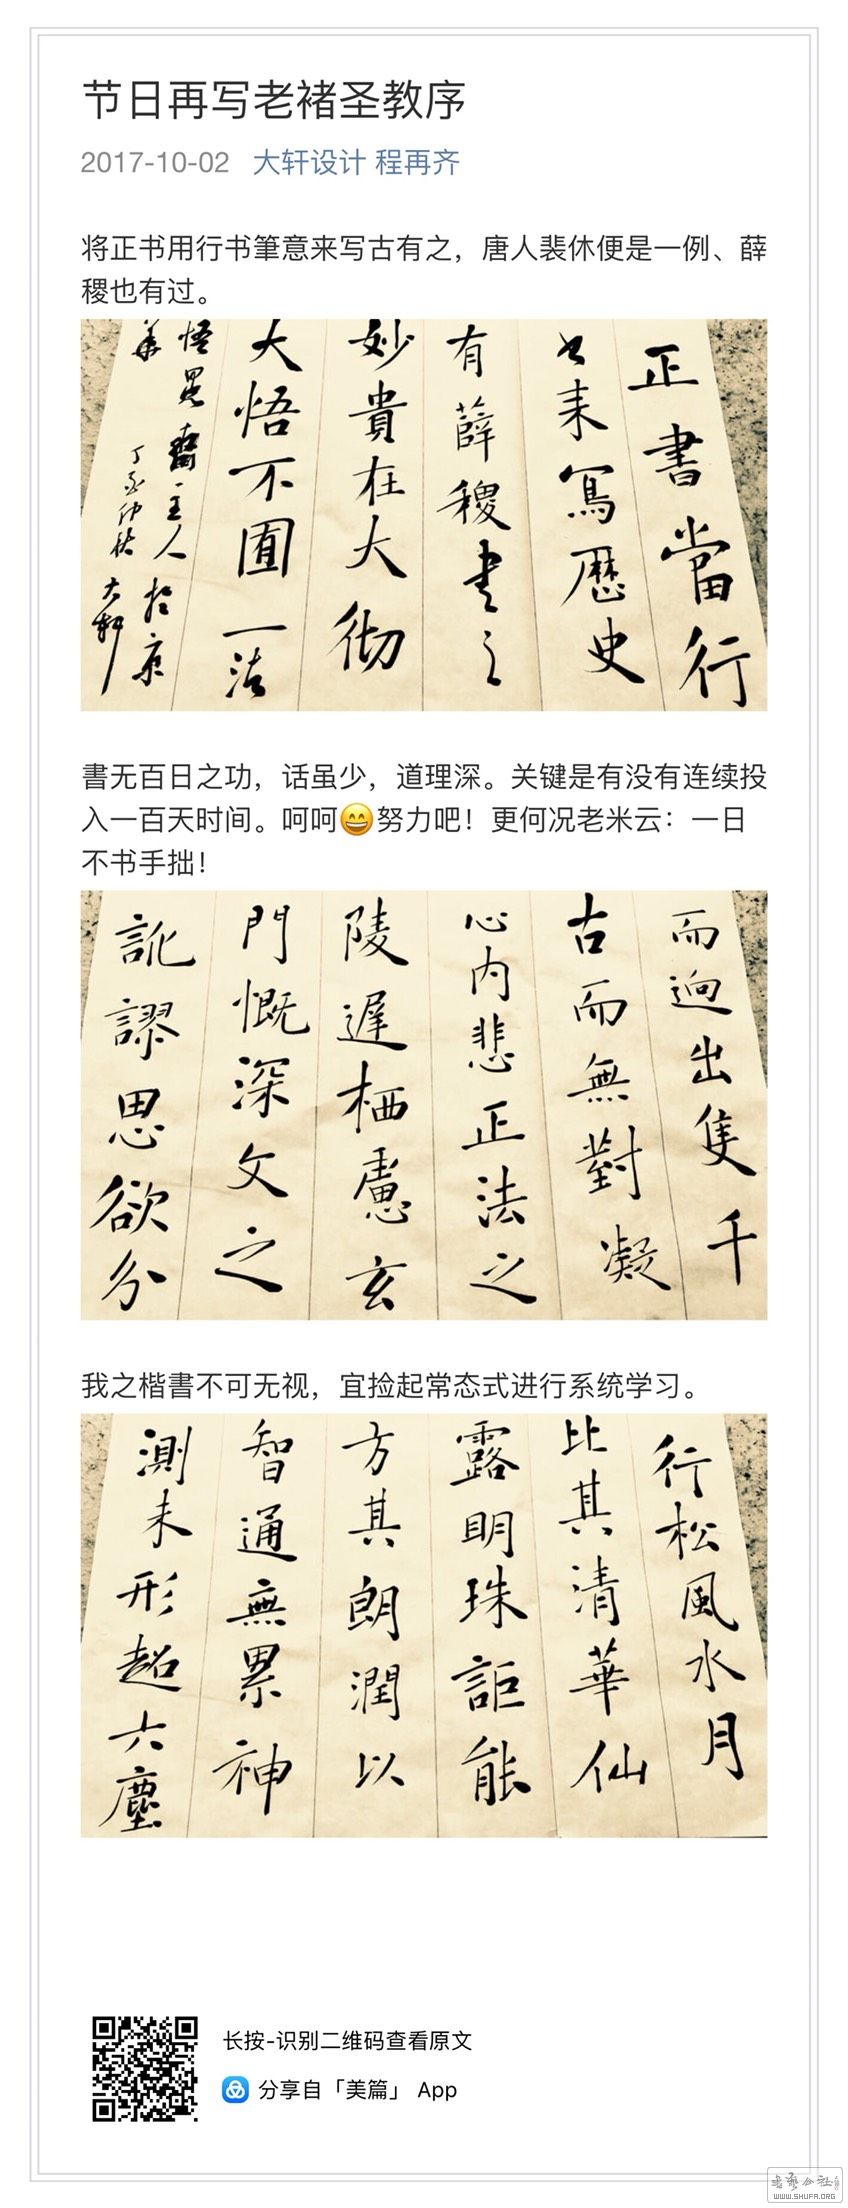 节日再写老褚圣教序
2017-10-02 大轩设计 程再齐
将正书用行书筆意来写古有之，唐人裴休便是一例、薛
稷也有过。
正書當行
書来寫歷史
有薛稷書之
妙貴在大彻
大悟不囿一法
悟異齋主人於京
華
丁酉仲秋 大軒
書无百日之功，话虽少，道理深。关键是有没有连续投
入一百天时间。呵呵😄努力吧！更何况老米云：一日
不书手拙！
而迥出隻千
古而無對凝
心内悲正法之
陵遲栖慮玄
門慨深文之
訛謬思欲分
我之楷書不可无视，宜捡起常态式进行系统学习。
行松風水月
比其清華仙
露明珠詎能
方其朗潤以
智通無累神
測未形超六塵
长按-识别二维码查看原文
分享自「美篇」 App
WWW.SHUFA.ORG